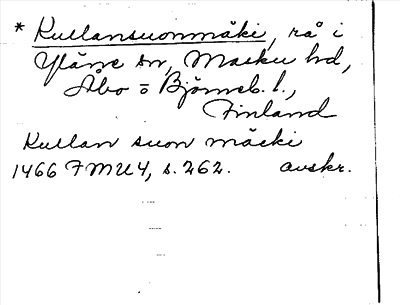 * Kullansuonmäki, rå i
Yläne sn, Masku hd,
Åbo o Björneb. l.,
Finland
Kullan suon mäcki
1466 FMU4, s. 262. avskr.